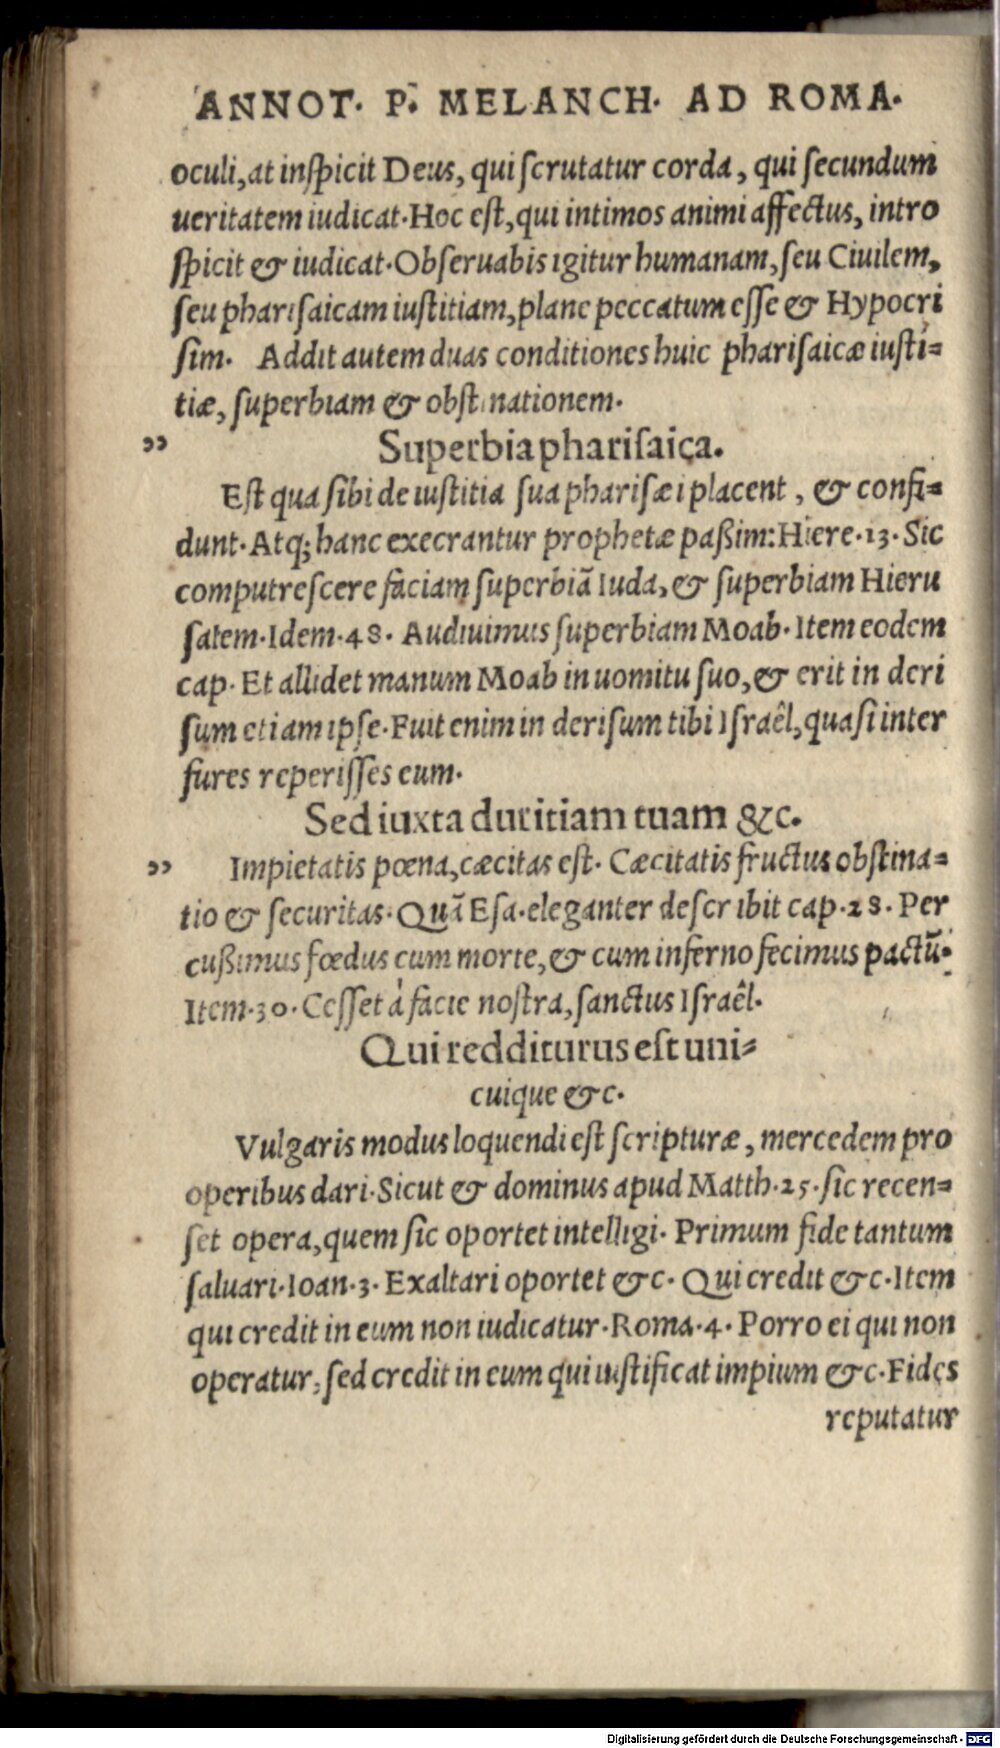 ANNOT. P. MELANCH. AD ROMA.
oculi, at inſpicit Deus, qui ſcrutatur corda, qui ſecundum
ueritatem iudicat. Hoc eſt, qui intimos animi affectus, intro
ſpicit & iudicat. Obſeruabis igitur humanam, ſeu Ciuilem,
ſeu phariſaicam iuſtitiam, plane peccatum eſſe & Hypocri
ſim. Addit autem duas conditiones huic phariſaicæ iuſti-
tiæ, ſuperbiam & obſtinationem.
” Superbia phariſaica.
Eſt qua ſibi de iuſtitia ſua phariſæi placent, & confi-
dunt. Atq; hanc execrantur prophetæ paßim: Hiere. 13. Sic
computreſcere faciam ſuperbiã Iuda, & ſuperbiam Hieru
ſalem. Idem. 48. Audiuimus ſuperbiam Moab. Item eodem
cap. Et allidet manum Moab in uomitu ſuo, & erit in deri
ſum etiam ipſe. Fuit enim in deriſum tibi Iſraêl, quaſi inter
fures reperiſſes eum.
Sed iuxta duritiam tuam &c.
” Impietatis pœna, cæcitas eſt. Cæcitatis fructus obſtina-
tio & ſecuritas. Quã Eſa. eleganter deſcribit cap. 28. Per
cußimus fœdus cum morte, & cum inferno fecimus pactũ.
Item. 30. Ceſſet à facie noſtra, ſanctus Iſraêl.
Qui redditurus eſt uni-
cuique &c.
Vulgaris modus loquendi eſt ſcripturæ, mercedem pro
operibus dari. Sicut & dominus apud Matth. 25. ſic recen-
ſet opera, quem ſic oportet intelligi. Primum fide tantum
ſaluari. Ioan. 3. Exaltari oportet &c. Qui credit &c. Item
qui credit in eum non iudicatur. Roma. 4. Porro ei qui non
operatur, ſed credit in eum qui iuſtificat impium &c. Fides
reputatur
Digitalisierung gefördert durch die Deutsche Forschungsgemeinschaft - DFG